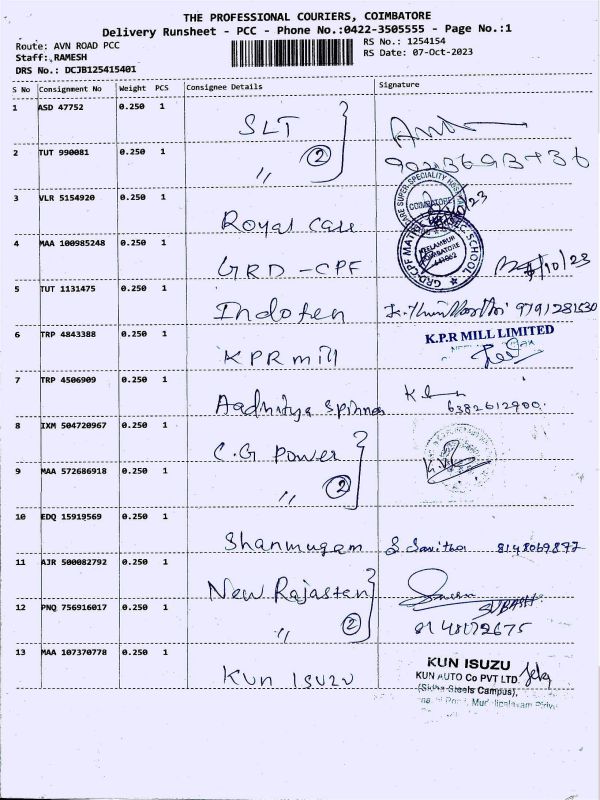 THE PROFESSIONAL COURIERS, COIMBATORE
Delivery Runsheet - PCC - Phone No.:0422-3505555 - Page No.:1
Route: AVN ROAD PCC
RS No.: 1254154
Staff:,RAMESH
RS Date: 07-Oct-2023
DRS No.: DCJB125415401
S No Consignment No Weight PCS Consignee Details Signature
1 ASD 47752 0.250 1
SLT
2 TUT 990081 0.250 1
" 2
3 VLR 5154920 0.250 1
Royal Care
COIMBATORE
4 MAA 100985248 0.250 1
GRD - CPF
5 TUT 1131475 0.250 1
Indofen 9791281530
6 TRP 4843388 0.250 1
K.P.R MILL LIMITED
KPR mill
7 TRP 4506909 0.250 1
Aadhitya Spinner 6382612900.
8 IXM 504720967 0.250 1
C.G Power
9 MAA 572686918 0.250 1
" 2
10 EDQ 15919569 0.250 1
Shanmugam S. Savitha 8148069877
11 AJR 500082792 0.250 1
New Rajastan
SUBASH
12 PNQ 756916017 0.250 1
" 2 8148172675
13 MAA 107370778 0.250 1
KUN ISUZU
KUN ISUZU
KUN AUTO Co PVT LTD.
(Sidha Steels Campus),